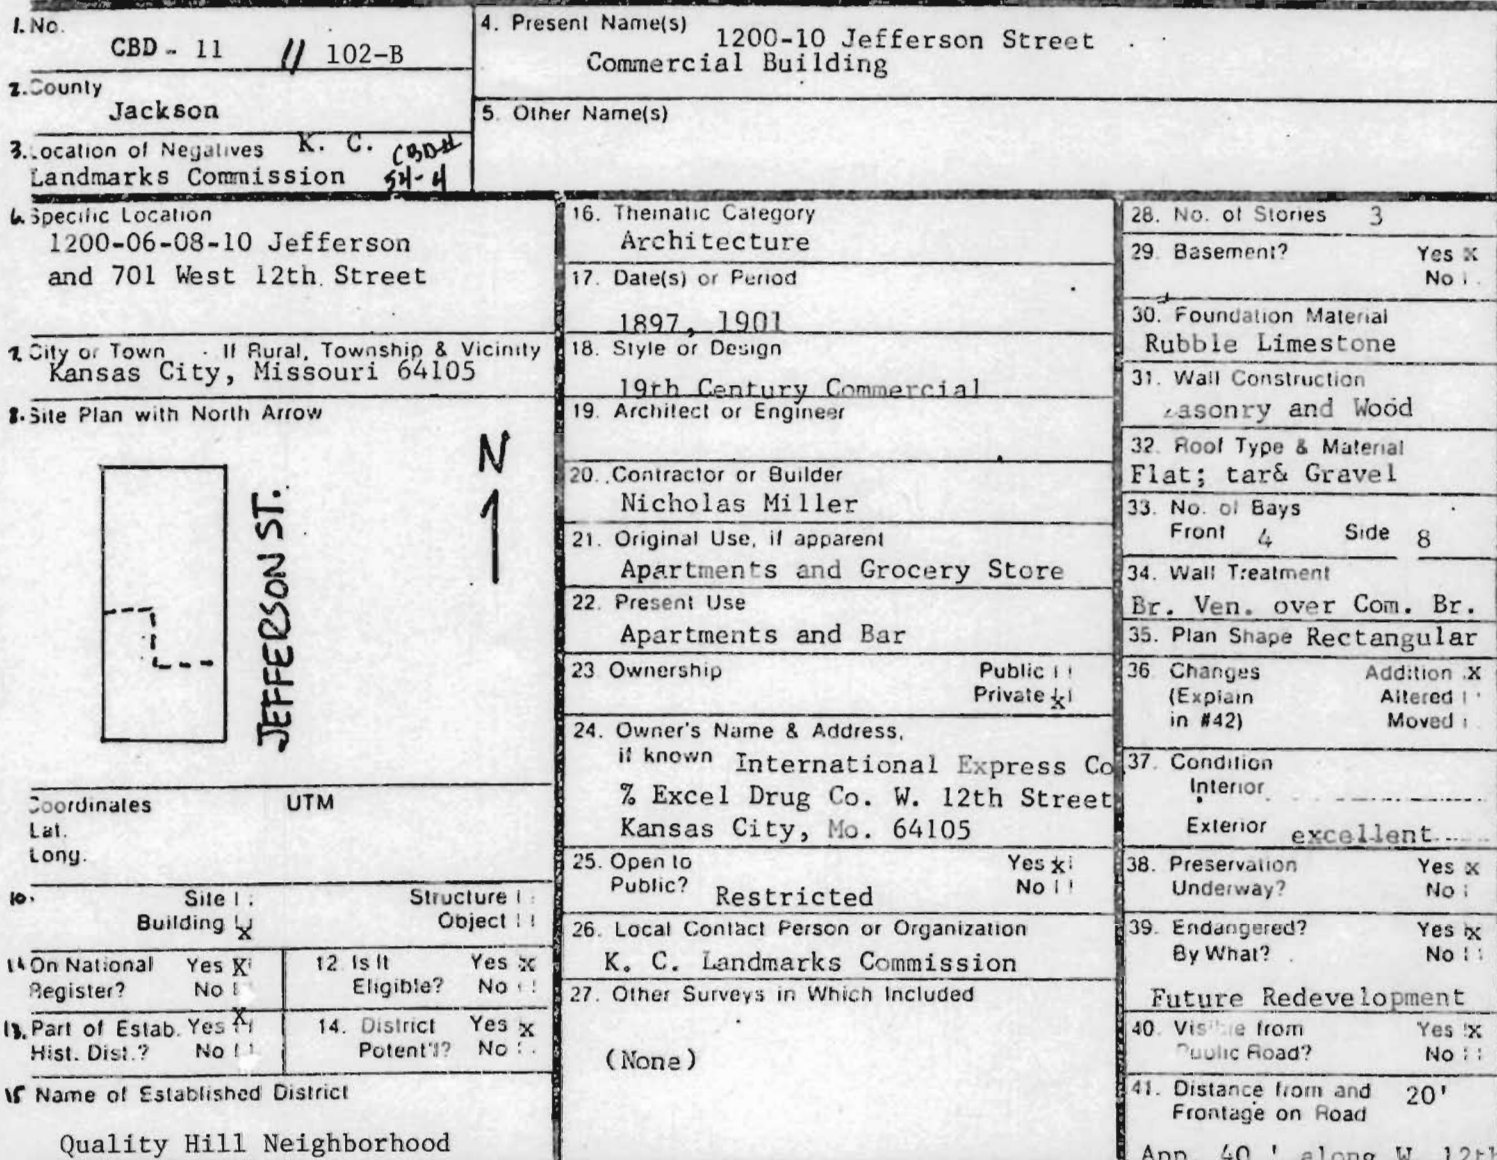 1. No.
CBD - 11 // 102-B
2. County
Jackson
3. Location of Negatives K. C. CBD-#
Landmarks Commission 54-4
4. Present Name(s) 1200-10 Jefferson Street
Commercial Building
5. Other Name(s)
6. Specific Location
1200-06-08-10 Jefferson
and 701 West 12th Street
7. City or Town If Rural, Township & Vicinity
Kansas City, Missouri 64105
8. Site Plan with North Arrow
N
JEFFERSON ST.
Coordinates UTM
Lat.
Long.
10. Site Structure
Building X Object
11. On National Yes X
Register? No
12. Is It Yes X
Eligible? No
13. Part of Estab. Yes X
Hist. Dist.? No
14. District Yes X
Potent'l? No
15. Name of Established District
Quality Hill Neighborhood
16. Thematic Category
Architecture
17. Date(s) or Period
1897, 1901
18. Style or Design
19th Century Commercial
19. Architect or Engineer
20. Contractor or Builder
Nicholas Miller
21. Original Use, if apparent
Apartments and Grocery Store
22. Present Use
Apartments and Bar
23. Ownership Public
Private X
24. Owner's Name & Address,
if known International Express Co
% Excel Drug Co. W. 12th Street
Kansas City, Mo. 64105
25. Open to Yes X
Public? Restricted No
26. Local Contact Person or Organization
K. C. Landmarks Commission
27. Other Surveys in Which Included
(None)
28. No. of Stories 3
29. Basement? Yes X
No
30. Foundation Material
Rubble Limestone
31. Wall Construction
Masonry and Wood
32. Roof Type & Material
Flat; tar& Gravel
33. No. of Bays
Front 4 Side 8
34. Wall Treatment
Br. Ven. over Com. Br.
35. Plan Shape Rectangular
36. Changes Addition X
(Explain Altered
in #42) Moved
37. Condition
Interior
Exterior excellent
38. Preservation Yes X
Underway? No
39. Endangered? Yes X
By What? No
Future Redevelopment
40. Visible from Yes X
Public Road? No
41. Distance from and 20'
Frontage on Road
App. 40 ' along W. 12th